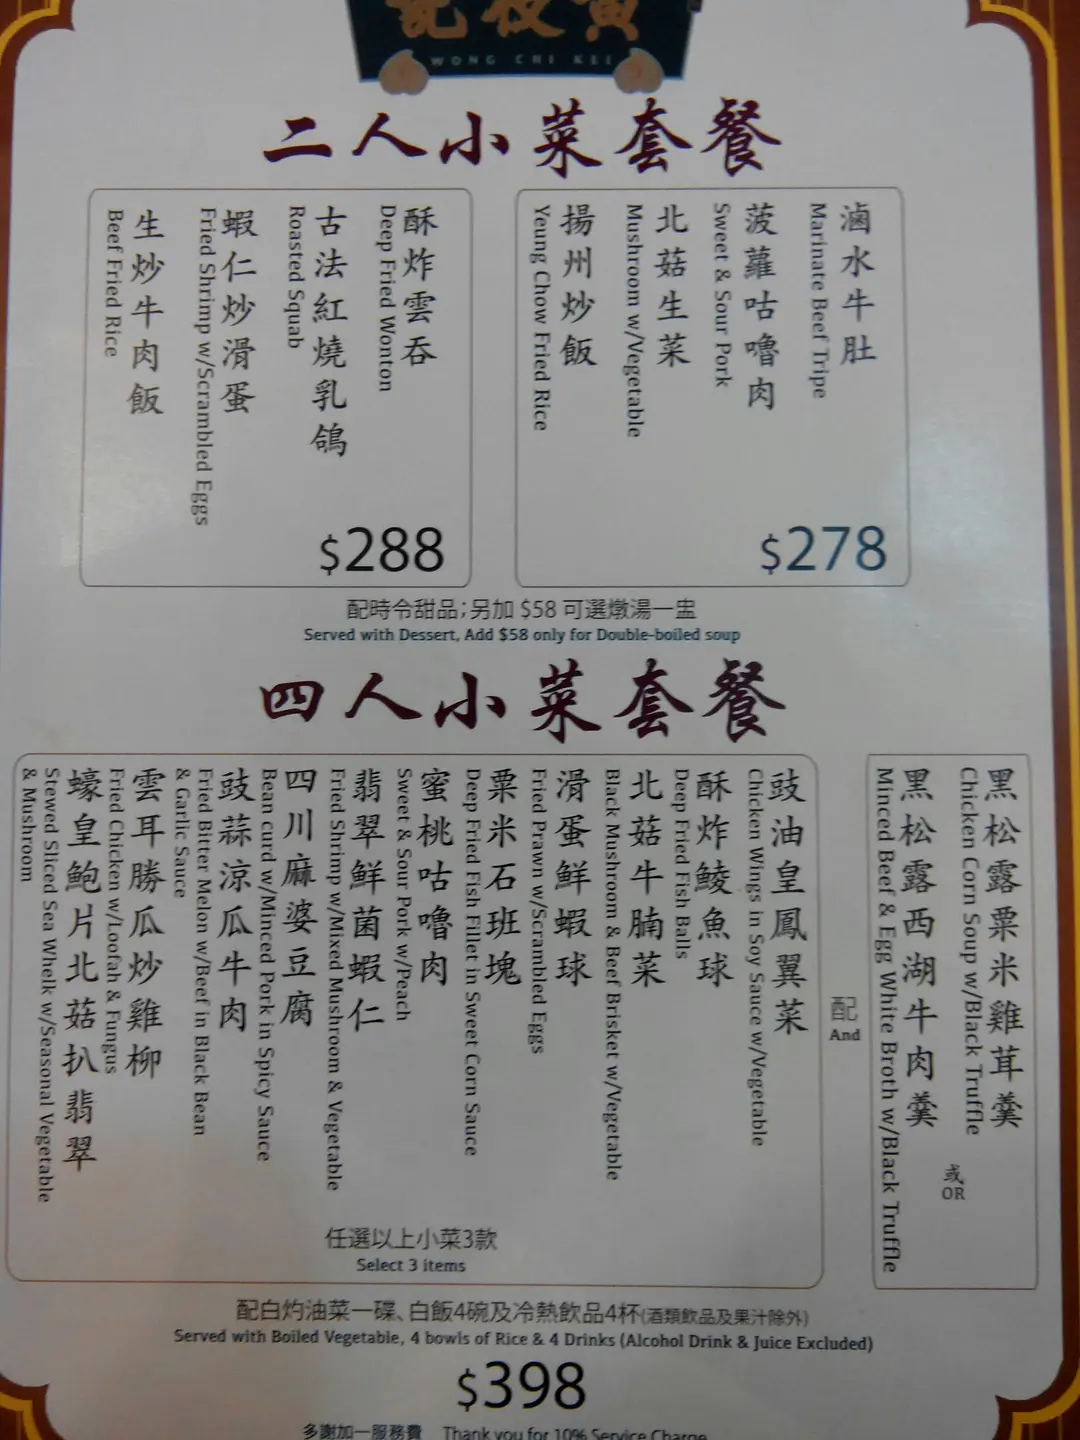 黃枝記
WONG CHI KEI
二人小菜套餐
滷水牛肚
Marinate Beef Tripe
菠蘿咕嚕肉
Sweet & Sour Pork
北菇生菜
Mushroom w/Vegetable
揚州炒飯
Yeung Chow Fried Rice
$278
酥炸雲吞
Deep Fried Wonton
古法紅燒乳鴿
Roasted Squab
蝦仁炒滑蛋
Fried Shrimp w/Scrambled Eggs
生炒牛肉飯
Beef Fried Rice
$288
配時令甜品;另加 $58 可選燉湯一盅
Served with Dessert, Add $58 only for Double-boiled soup
四人小菜套餐
黑松露粟米雞茸羹
Chicken Corn Soup w/Black Truffle
或
OR
黑松露西湖牛肉羹
Minced Beef & Egg White Broth w/Black Truffle
配
And
豉油皇鳳翼菜
Chicken Wings in Soy Sauce w/Vegetable
酥炸鯪魚球
Deep Fried Fish Balls
北菇牛腩菜
Black Mushroom & Beef Brisket w/Vegetable
滑蛋鮮蝦球
Fried Prawn w/Scrambled Eggs
粟米石班塊
Deep Fried Fish Fillet in Sweet Corn Sauce
蜜桃咕嚕肉
Sweet & Sour Pork w/Peach
翡翠鮮菌蝦仁
Fried Shrimp w/Mixed Mushroom & Vegetable
四川麻婆豆腐
Bean curd w/Minced Pork in Spicy Sauce
豉蒜涼瓜牛肉
Fried Bitter Melon w/Beef in Black Bean
& Garlic Sauce
雲耳勝瓜炒雞柳
Fried Chicken w/Loofah & Fungus
蠔皇鮑片北菇扒翡翠
Stewed Sliced Sea Whelk w/Seasonal Vegetable
& Mushroom
任選以上小菜3款
Select 3 items
配白灼油菜一碟、白飯4碗及冷熱飲品4杯(酒類飲品及果汁除外)
Served with Boiled Vegetable, 4 bowls of Rice & 4 Drinks (Alcohol Drink & Juice Excluded)
$398
多謝加一服務費 Thank you for 10% Service Charge